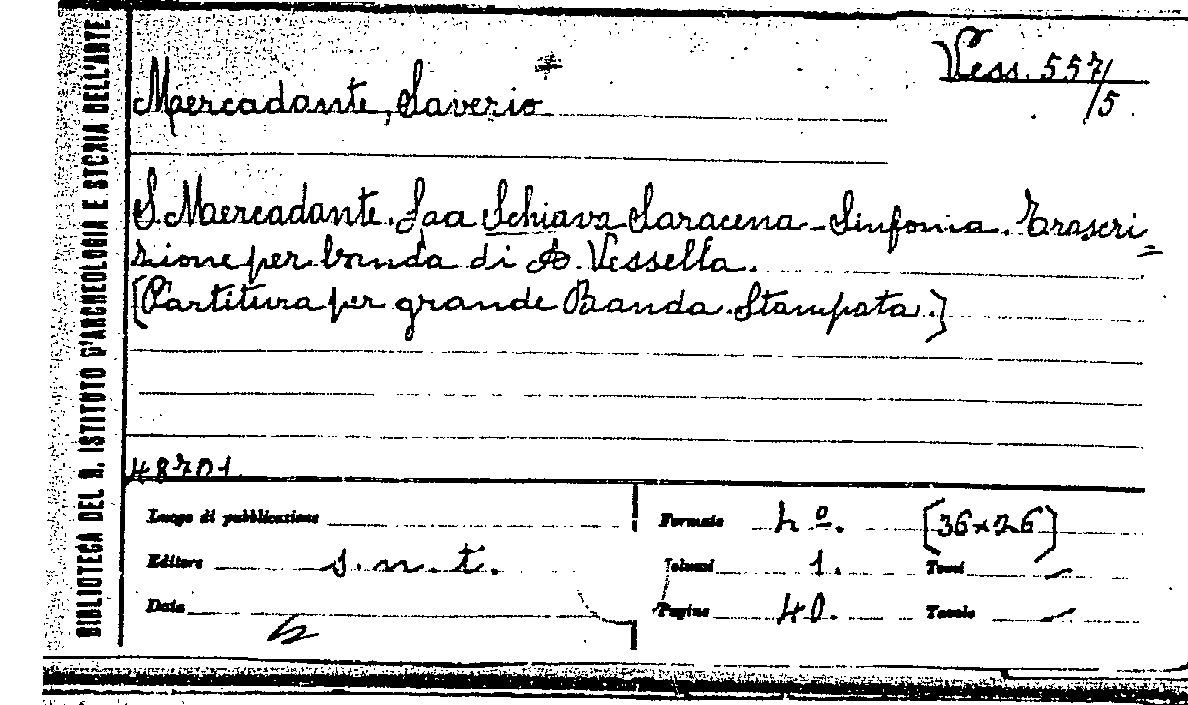 BIBLIOTECA DEL R. ISTITUTO D'ARCHEOLOGIA E STORIA DELL'ARTE
Vess. 557/5
Mercadante, Saverio
S. Mercadante. La Schiava Saracena - Sinfonia. Trascri=
zione per banda di A. Vessella.
[Partitura per grande Banda. Stampata.]
48701
Luogo di pubblicazione
Formato 4º. [36x26]
Editore s.n.t.
Volumi 1. Tomi —
Data
Pagine 40. Tavole —